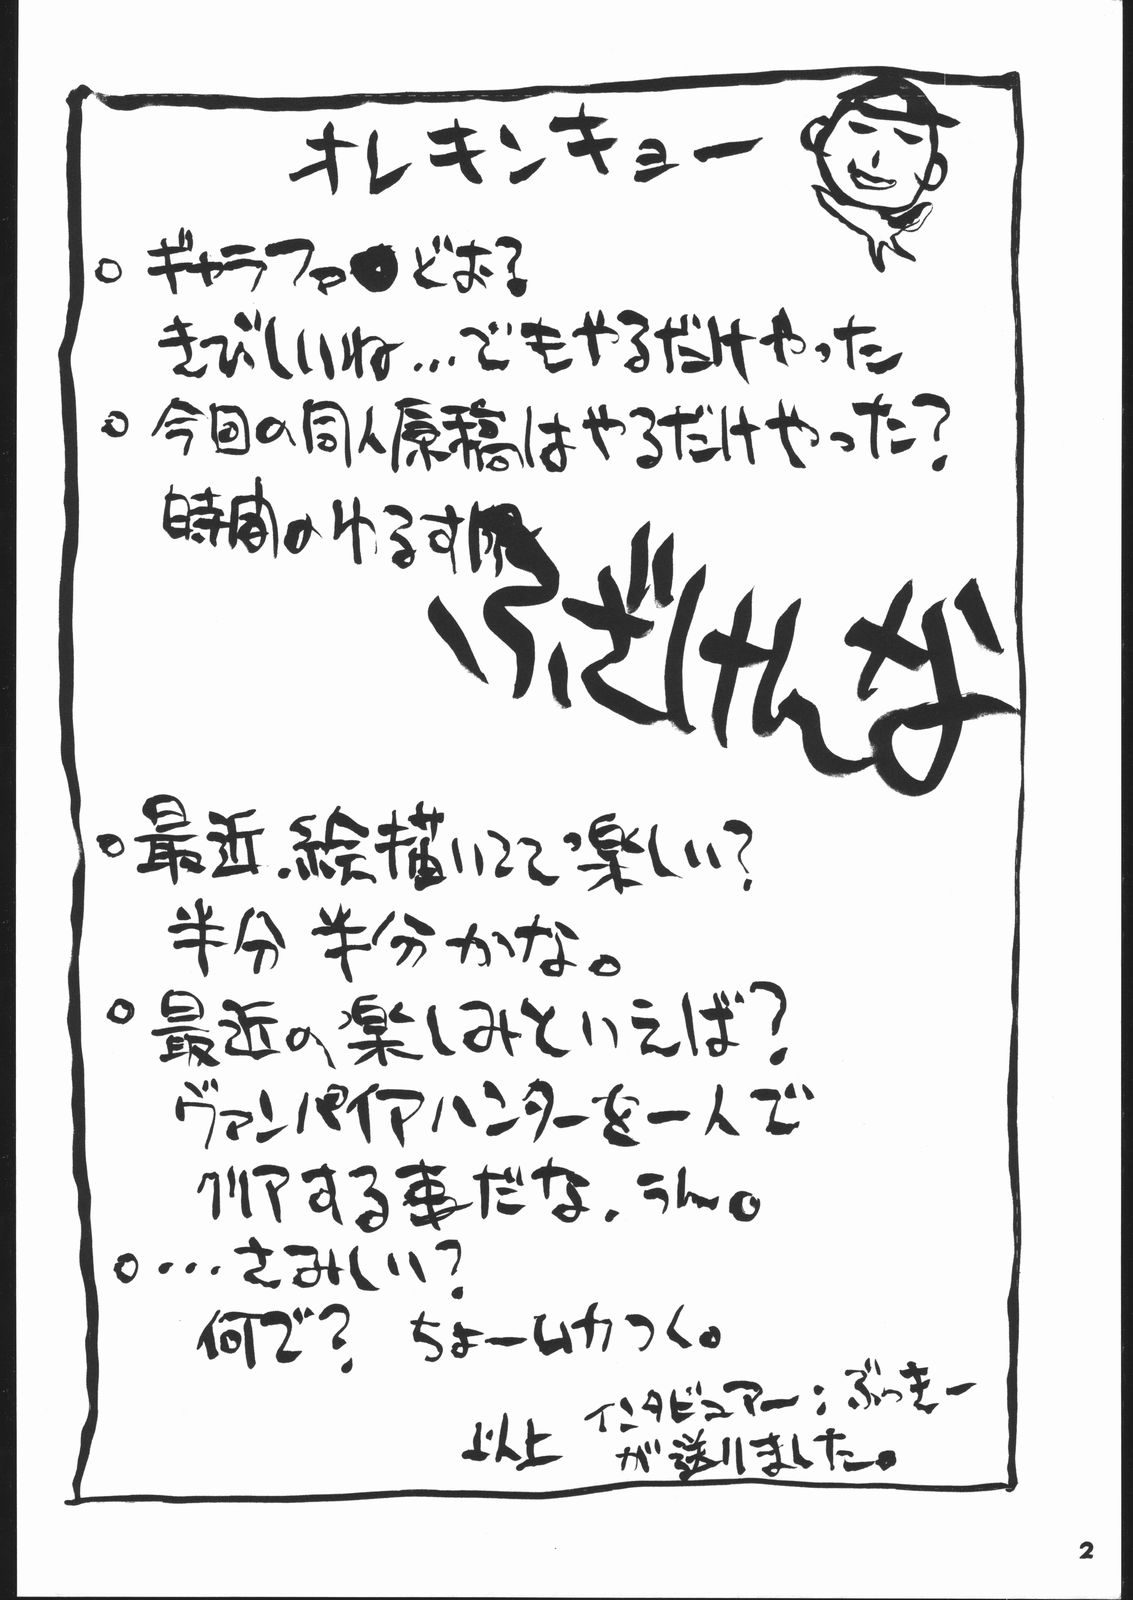 オレキンキョー
ギャラファ●どお?
きびしいね…でもやるだけやった
今回の同人原稿はやるだけやった?
時間のゆるす限
ふざけんな
最近、絵描いてて楽しい?
半分半分かな。
最近の楽しみといえば?
ヴァンパイアハンターを一人で
クリアする事だな、うん。
…さみしい?
何で? ちょームカつく。
インタビュアー:ぶっきー
以上 が送りました。
2